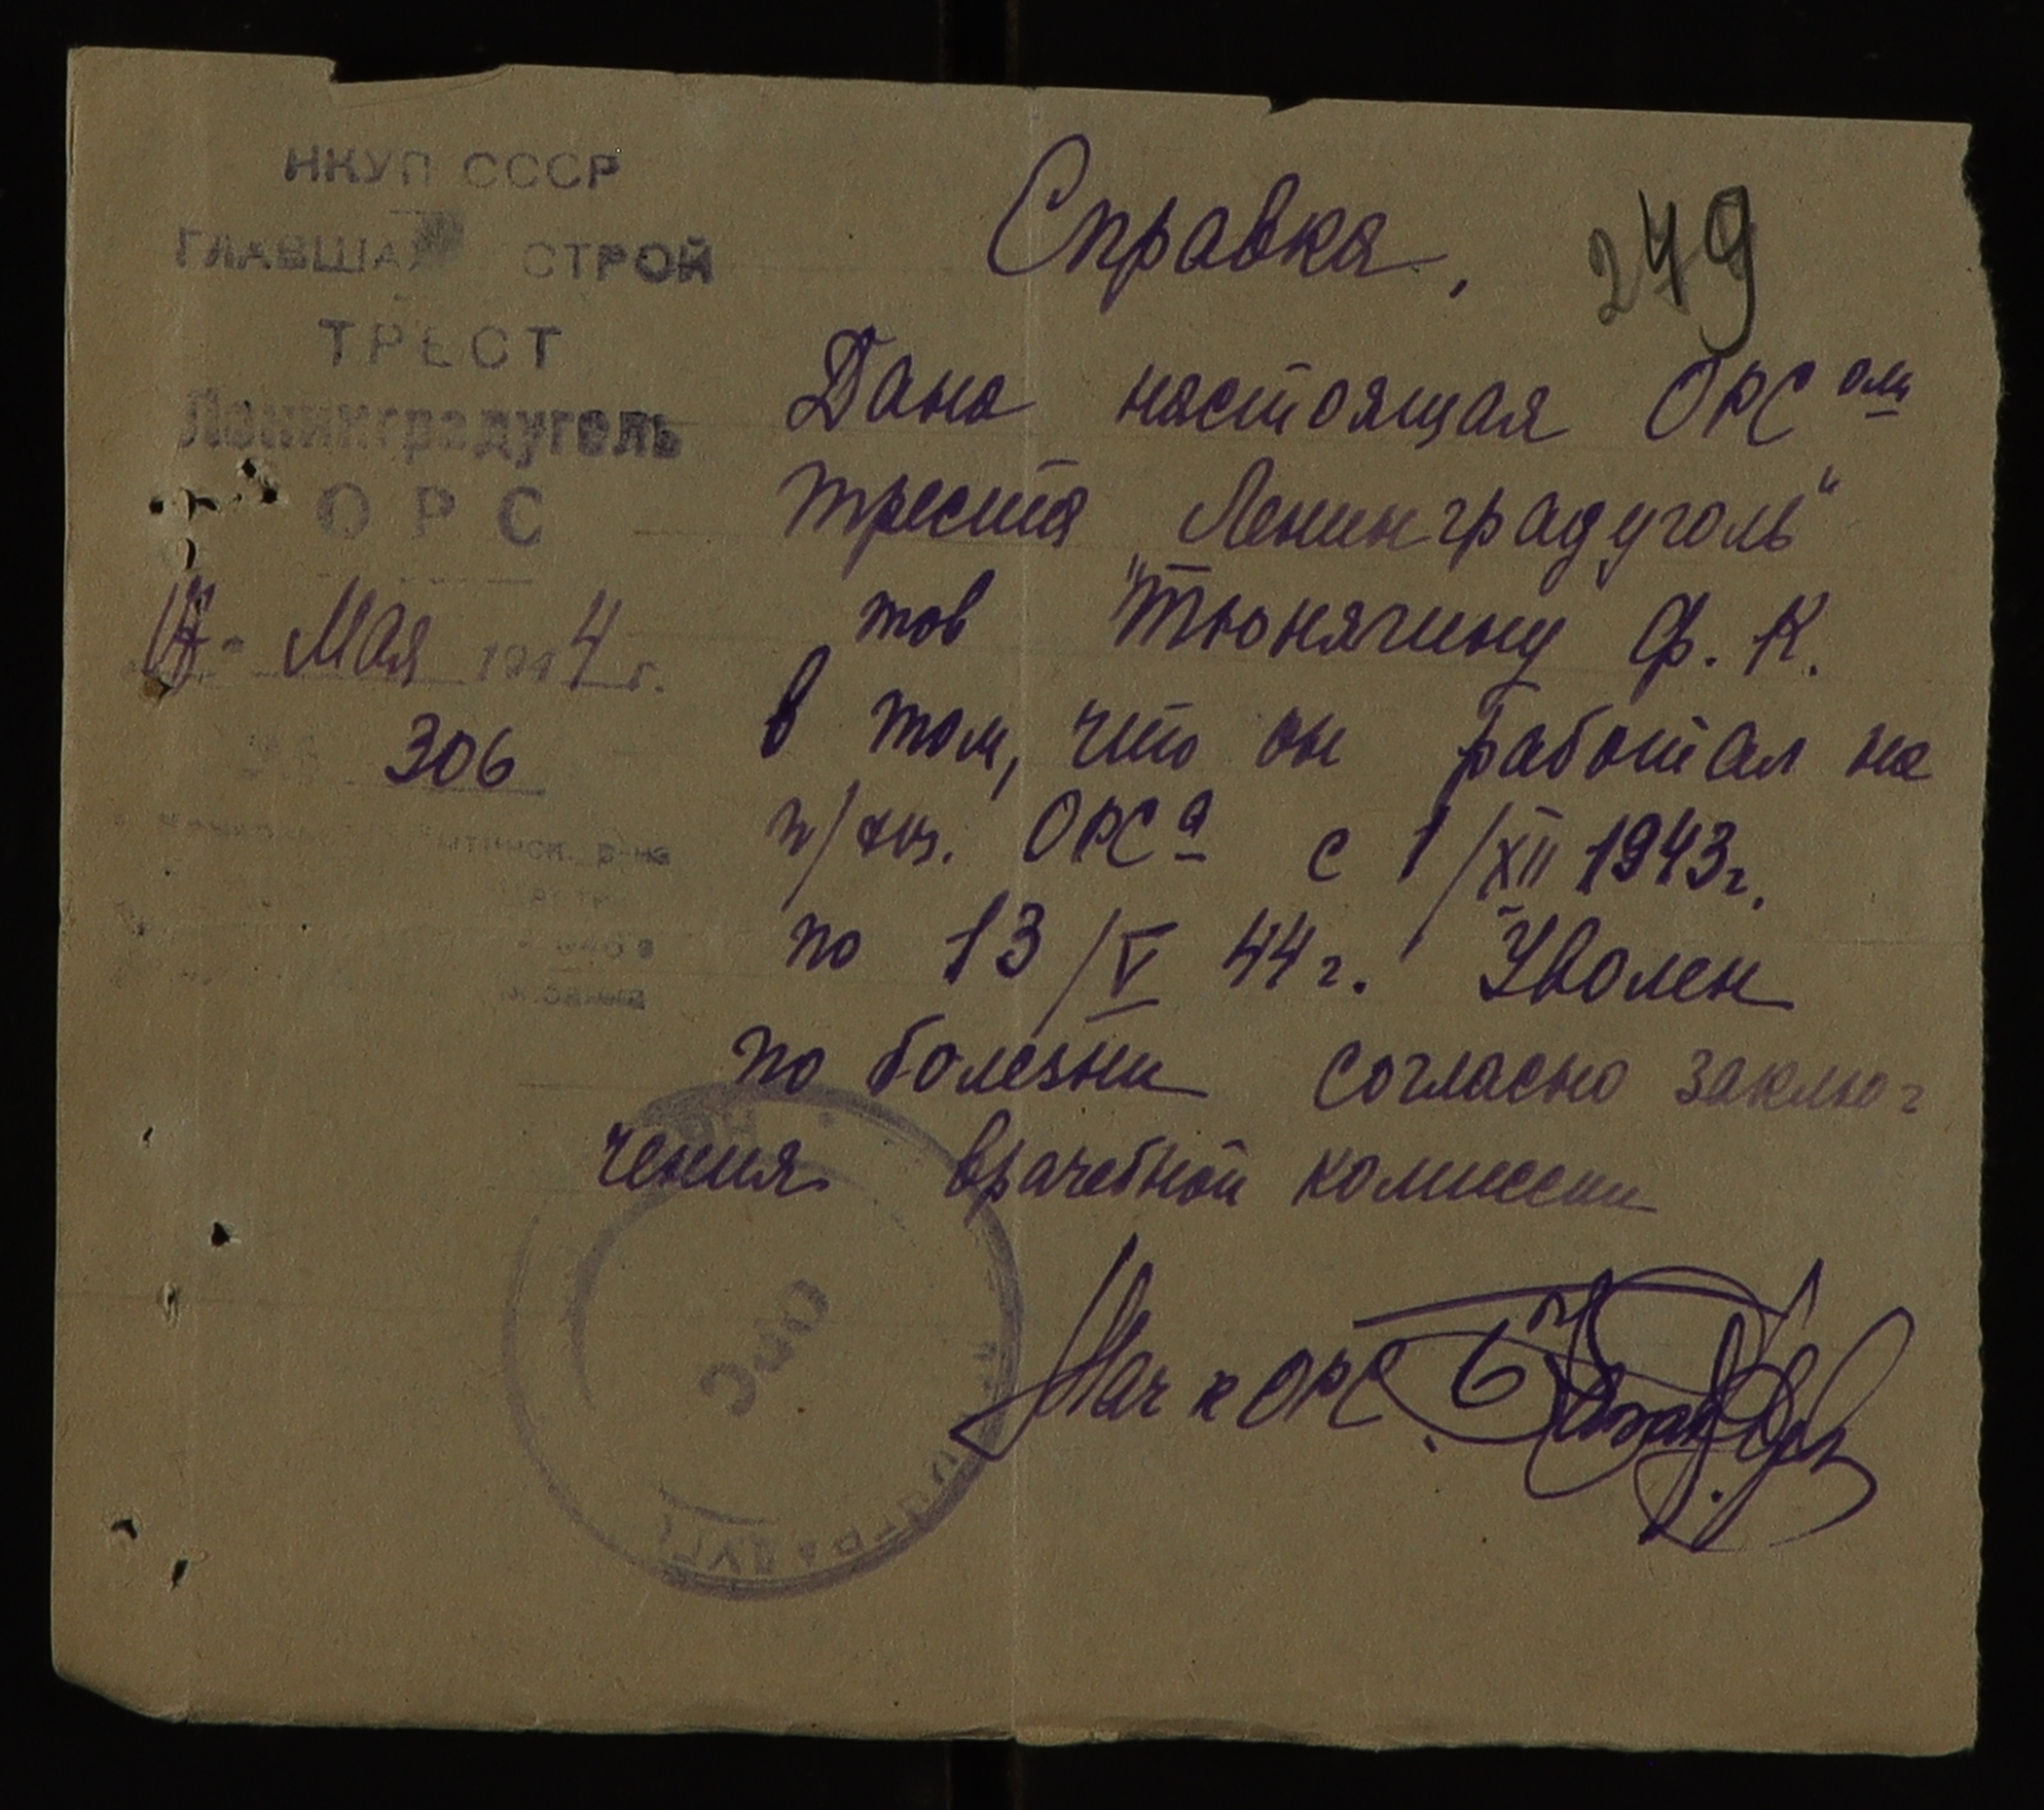 НКУП СССР
ГЛАВША СТРОЙ
ТРЕСТ
Ленинградуголь
ОРС
Мая 1944 г.
306
р-на
Справка,
279
Дана настоящая ОРСом
треста „Ленинградуголь“
тов Тюнягину Ф. К.
в том, что он работал на
п/хоз. ОРСа с 1/XII 1943г.
по 13/V 44г. Уволен
по болезни согласно заклю-
чения врачебной комиссии
Нач к ОРС
ОРС